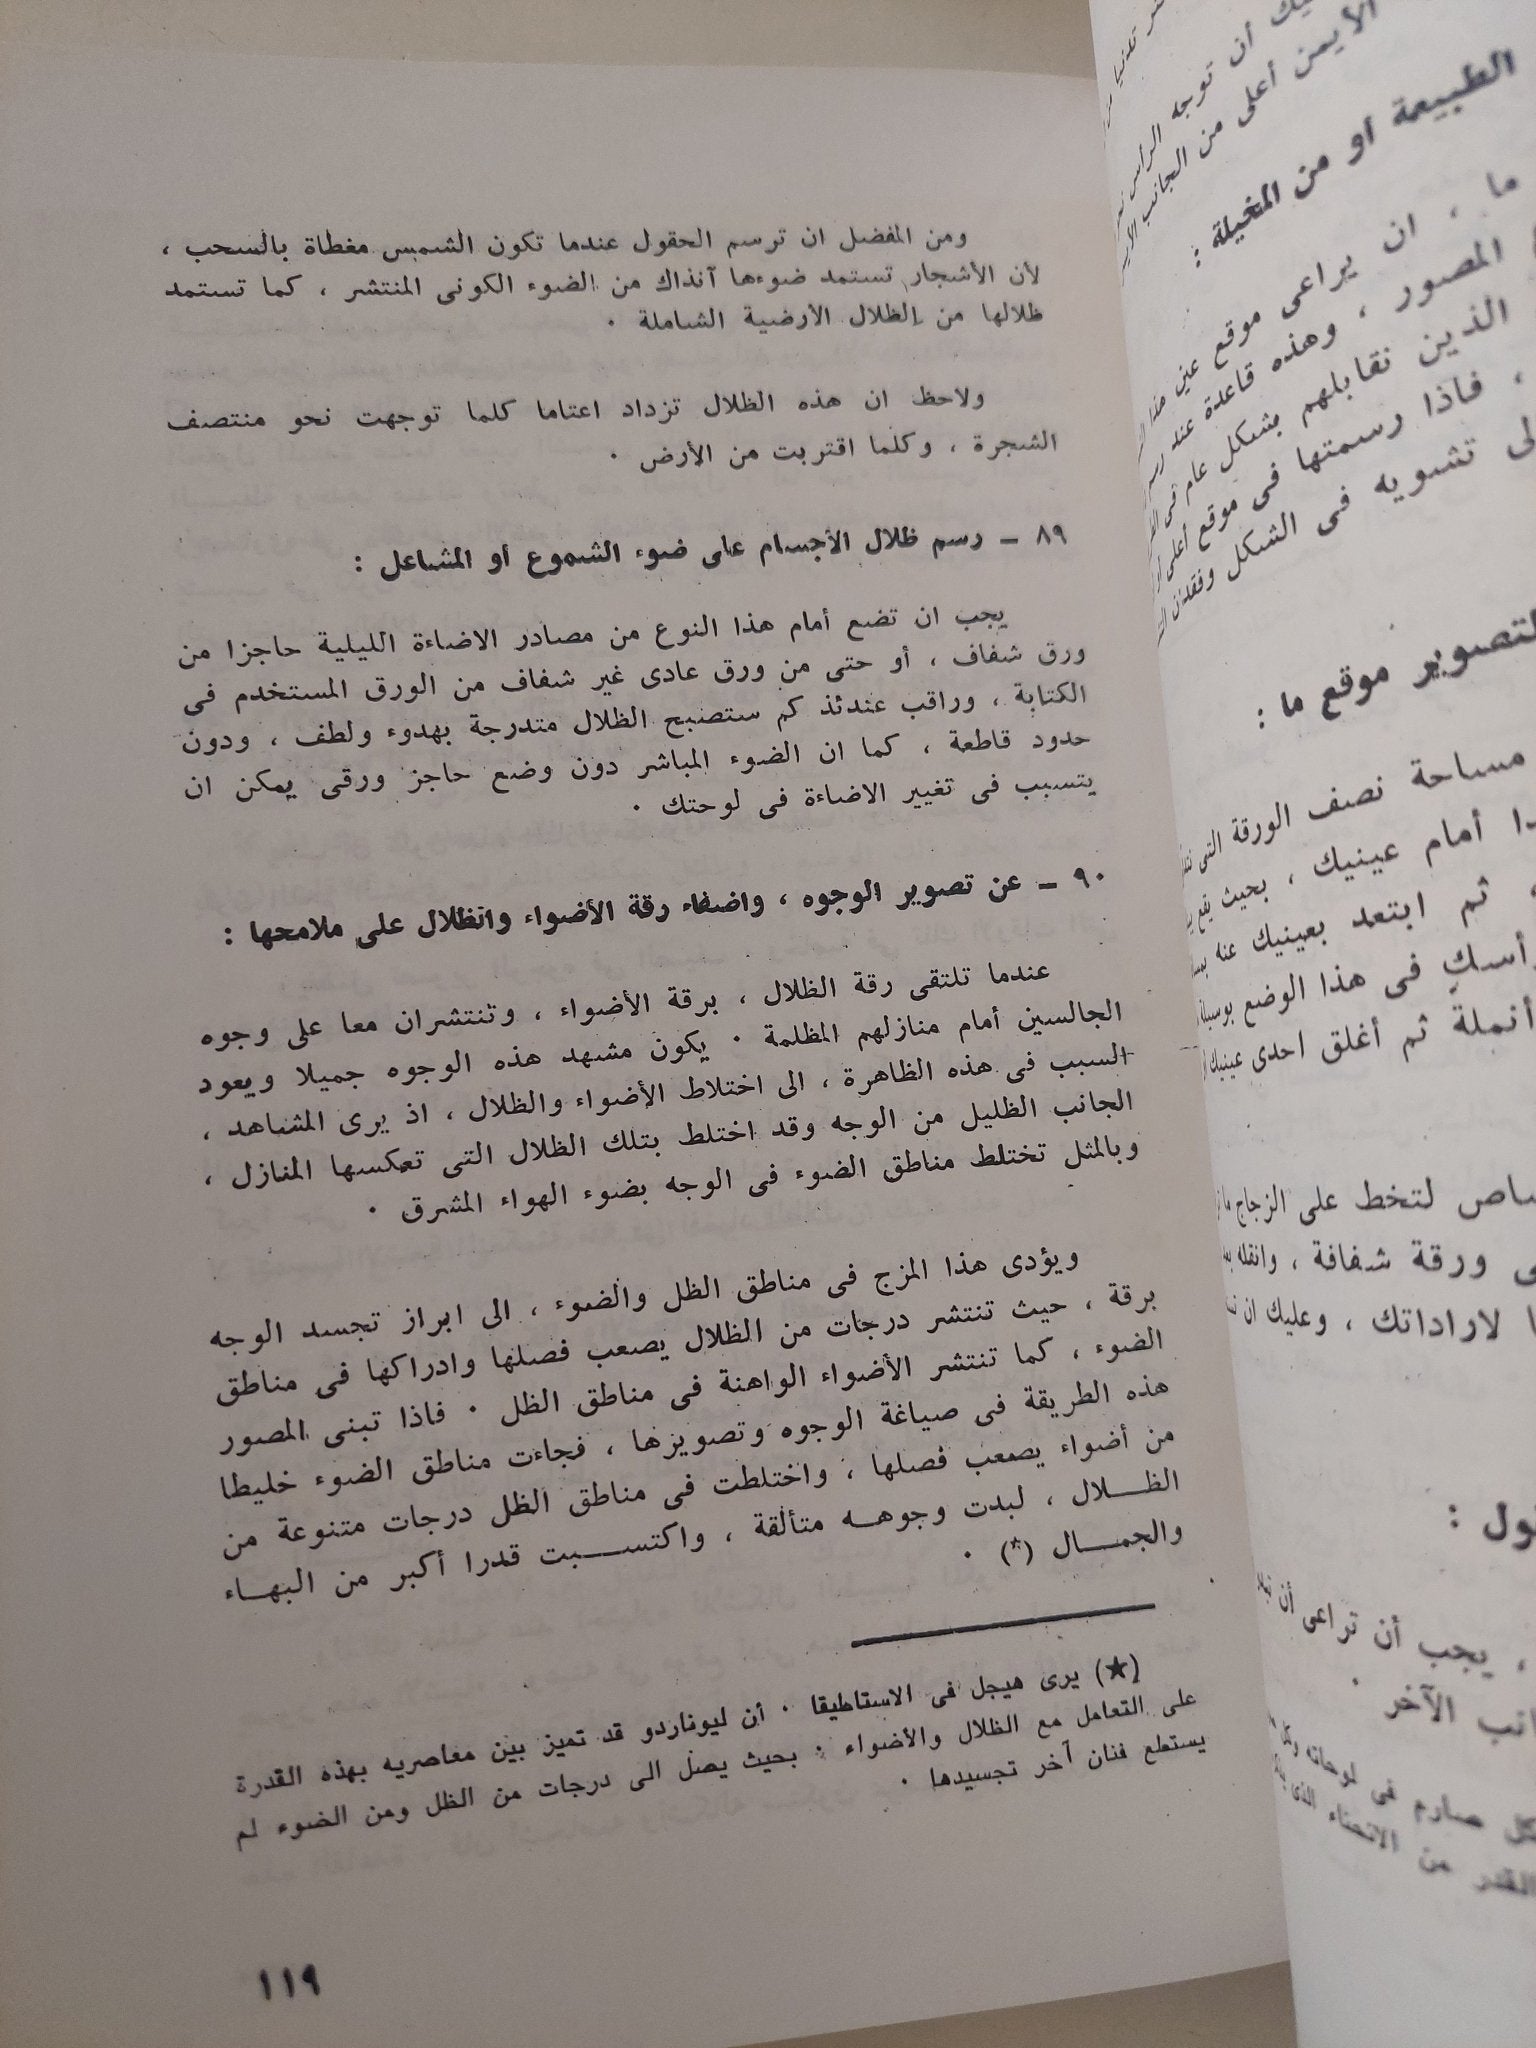 ومن المفضل ان ترسم الحقول عندما تكون الشمس مغطاة بالسحب ،
لأن الأشجار تستمد ضوءها آنذاك من الضوء الكونى المنتشر ، كما تستمد
ظلالها من الظلال الأرضية الشاملة .
ولاحظ ان هذه الظلال تزداد اعتاما كلما توجهت نحو منتصف
الشجرة ، وكلما اقتربت من الأرض .
٨٩ – رسم ظلال الأجسام على ضوء الشموع أو المشاعل :
يجب ان تضع أمام هذا النوع من مصادر الاضاءة الليلية حاجزا من
ورق شفاف ، أو حتى من ورق عادى غير شفاف من الورق المستخدم فى
الكتابة ، وراقب عندئذ كم ستصبح الظلال متدرجة بهدوء ولطف ، ودون
حدود قاطعة ، كما ان الضوء المباشر دون وضع حاجز ورقى يمكن ان
يتسبب فى تغيير الاضاءة فى لوحتك .
٩٠ – عن تصوير الوجوه ، واضفاء رقة الأضواء والظلال على ملامحها :
عندما تلتقى رقة الظلال ، برقة الأضواء ، وتنتشران معا على وجوه
الجالسين أمام منازلهم المظلمة . يكون مشهد هذه الوجوه جميلا ويعود
السبب فى هذه الظاهرة ، الى اختلاط الأضواء والظلال ، اذ يرى المشاهد ،
الجانب الظليل من الوجه وقد اختلط بتلك الظلال التى تعكسها المنازل ،
وبالمثل تختلط مناطق الضوء فى الوجه بضوء الهواء المشرق .
ويؤدى هذا المزج فى مناطق الظل والضوء ، الى ابراز تجسد الوجه
برقة ، حيث تنتشر درجات من الظلال يصعب فصلها وادراكها فى مناطق
الضوء ، كما تنتشر الأضواء الواهنة فى مناطق الظل . فاذا تبنى المصور
هذه الطريقة فى صياغة الوجوه وتصويرها ، فجاءت مناطق الضوء خليطا
من أضواء يصعب فصلها ، واختلطت فى مناطق الظل درجات متنوعة من
الظلال ، لبدت وجوهه متألقة ، واكتسبت قدرا أكبر من البهاء
والجمال (*) .
(★) يرى هيجل فى الاستاطيقا . أن ليوناردو قد تميز بين معاصريه بهذه القدرة
على التعامل مع الظلال والأضواء : بحيث يصل الى درجات من الظل ومن الضوء لم
يستطع فنان آخر تجسيدها .
١١٩
أن توجه الرأس
الأيمن أعلى من الجانب
الطبيعة أو من المخيلة :
ما ، ان يراعى موقع عين هذا
المصور ، وهذه قاعدة عند
الذين نقابلهم بشكل عام فى
، فاذا رسمتها فى موقع أعلى
تشويه فى الشكل وفقدان
لتصوير موقع ما :
مساحة نصف الورقة التى
أمام عينيك ، بحيث يقع
، ثم ابتعد بعينيك عنه
رأسك فى هذا الوضع بوسيلة
أنملة ثم أغلق احدى عينيك
لتخط على الزجاج ما
ورقة شفافة ، وانقله
لاراداتك ، وعليك ان
، يجب أن تراعى أن
الآخر .
صارم فى لوحاته وكل
القدر من الانحناء الذى